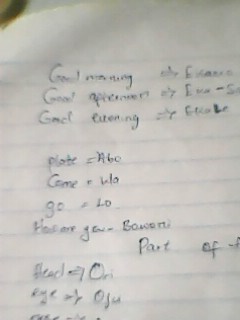 Good morning => E
Good afternoon => E
Good evening => E
plate = Abo
Come = Wa
go = Lo
How are you - Bawoni
Part of
Head => Ori
eye => Oju